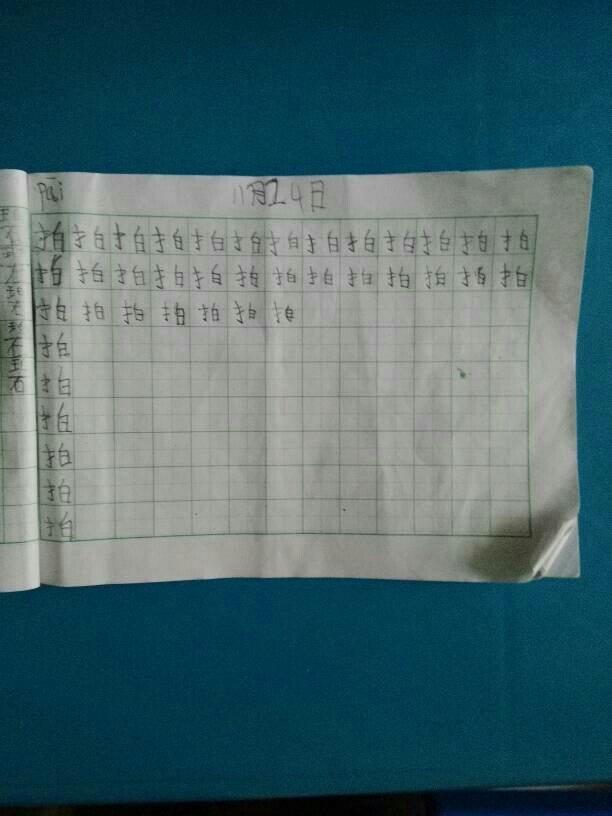 pāi 11月24日
拍拍拍拍拍拍拍拍拍拍拍拍拍
拍拍拍拍拍拍拍拍拍拍拍拍拍
拍拍拍拍拍拍拍
拍
拍
拍
拍
拍
拍